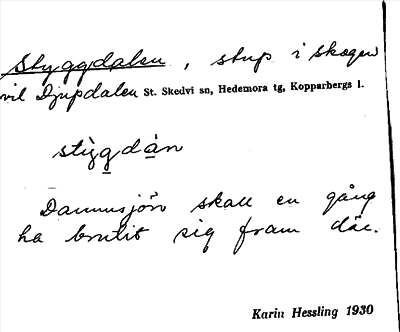 Styggdalen, stup i skogen
vid Djupdalen St. Skedvi sn, Hedemora tg, Kopparbergs l.
stỳgdàn
Dammsjön skall en gång
ha brutit sig fram där.
Karin Hessling 1930